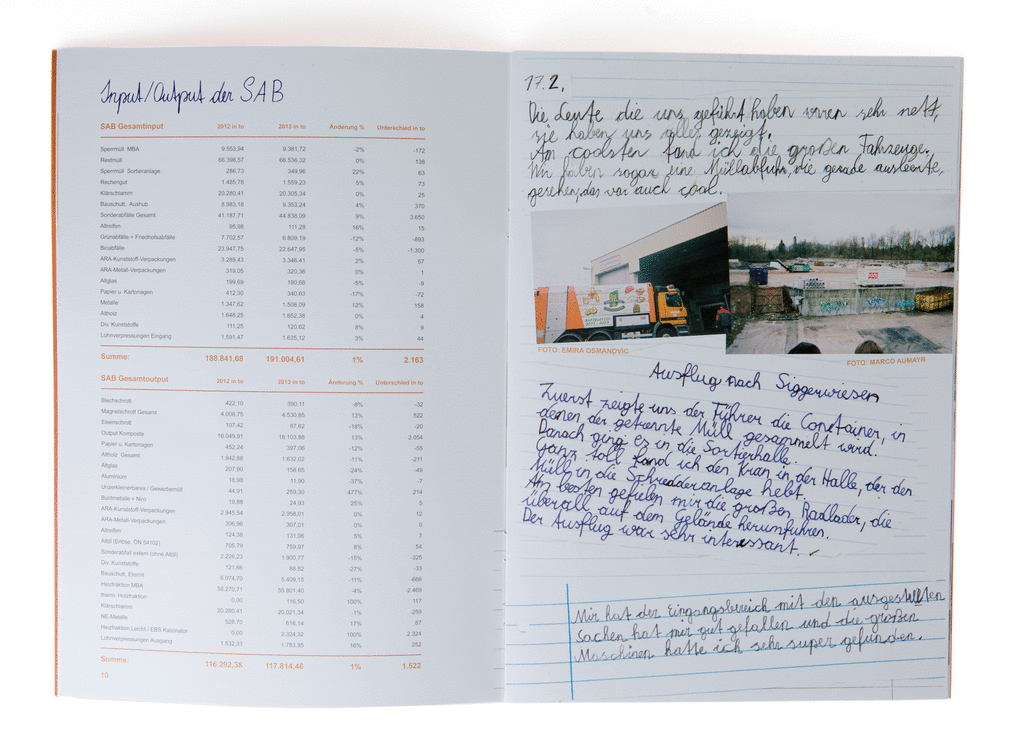 Input/Output der SAB
SAB Gesamtinput 2012 in to 2013 in to Änderung % Unterschied in to
Spermüll MBA 9.553,94 9.381,72 -2% -172
Restmüll 66.398,57 66.536,32 0% 138
Spermüll Sortieranlage 286,73 349,96 22% 63
Rechengut 1.485,78 1.559,23 5% 73
Klärschlamm 20.280,41 20.305,34 0% 25
Bauschutt, Aushub 8.983,18 9.353,24 4% 370
Sonderabfälle Gesamt 41.187,71 44.838,09 9% 3.650
Altreifen 95,98 111,28 16% 15
Grünabfälle + Friedhofsabfälle 7.702,57 6.809,19 -12% -893
Bioabfälle 23.947,75 22.647,95 -5% -1.300
ARA-Kunststoff-Verpackungen 3.289,43 3.346,41 2% 57
ARA-Metall-Verpackungen 319,05 320,36 0% 1
Altglas 199,69 190,68 -5% -9
Papier u. Kartonagen 412,30 340,63 -17% -72
Metalle 1.347,62 1.506,09 12% 158
Altholz 1.648,25 1.652,38 0% 4
Div. Kunststoffe 111,25 120,62 8% 9
Lohnverpressungen Eingang 1.591,47 1.635,12 3% 44
Summe: 188.841,68 191.004,61 1% 2.163
SAB Gesamtoutput 2012 in to 2013 in to Änderung % Unterschied in to
Blechschrott 422,10 390,11 -8% -32
Magnetschrott Gesamt 4.008,75 4.530,85 13% 522
Eisenschrott 107,42 87,62 -18% -20
Output Komposte 16.049,91 18.103,88 13% 2.054
Papier u. Kartonagen 452,24 397,06 -12% -55
Altholz Gesamt 1.842,88 1.632,02 -11% -211
Altglas 207,90 158,65 -24% -49
Aluminium 18,98 11,90 -37% -7
Unzerkleinerbares / Gewerbemüll 44,91 259,30 477% 214
Buntmetalle + Niro 19,88 24,93 25% 5
ARA-Kunststoff-Verpackungen 2.945,54 2.958,01 0% 12
ARA-Metall-Verpackungen 306,96 307,01 0% 0
Altreifen 124,38 131,06 5% 7
Altöl (Erlöse, ÖN 54102) 705,79 759,97 8% 54
Sonderabfall extern (ohne Altöl) 2.226,23 1.900,77 -15% -325
Div. Kunststoffe 121,66 88,52 -27% -33
Bauschutt, Eternit 6.074,70 5.409,15 -11% -666
Heizfraktion MBA 58.270,71 55.801,40 -4% -2.469
therm. Holzfraktion 0,00 116,50 100% 117
Klärschlamm 20.280,41 20.021,34 -1% -259
NE-Metalle 528,70 616,14 17% 87
Heizfraktion Leicht / EBS Kalorinator 0,00 2.324,32 100% 2.324
Lohnverpressungen Ausgang 1.532,33 1.783,95 16% 252
Summe: 116.292,38 117.814,46 1% 1.522
10
17.2.
Die Leute die uns geführt haben waren sehr nett,
sie haben uns alles gezeigt.
Am coolsten fand ich die großen Fahrzeuge.
Wir haben sogar eine Müllabfuhr, die gerade ausleerte,
gesehen, das war auch cool.
FOTO: EMIRA OSMANOVIC
FOTO: MARCO AUMAYR
Ausflug nach Siggerwiesen
Zuerst zeigte uns der Führer die Constainer, in
denen der getrennte Müll gesammelt wird.
Danach ging es in die Sortierhalle.
Ganz toll fand ich den Kran in der Halle, der den
Müll in die Schredderanlage hebt.
Am besten gefielen mir die großen Radlader, die
überall auf dem Gelände herumfuhren.
Der Ausflug war sehr interessant.
Mir hat der Eingangsbereich mit den ausgestellten
Sachen hat mir gut gefallen und die großen
Maschinen hatte ich sehr super gefunden.